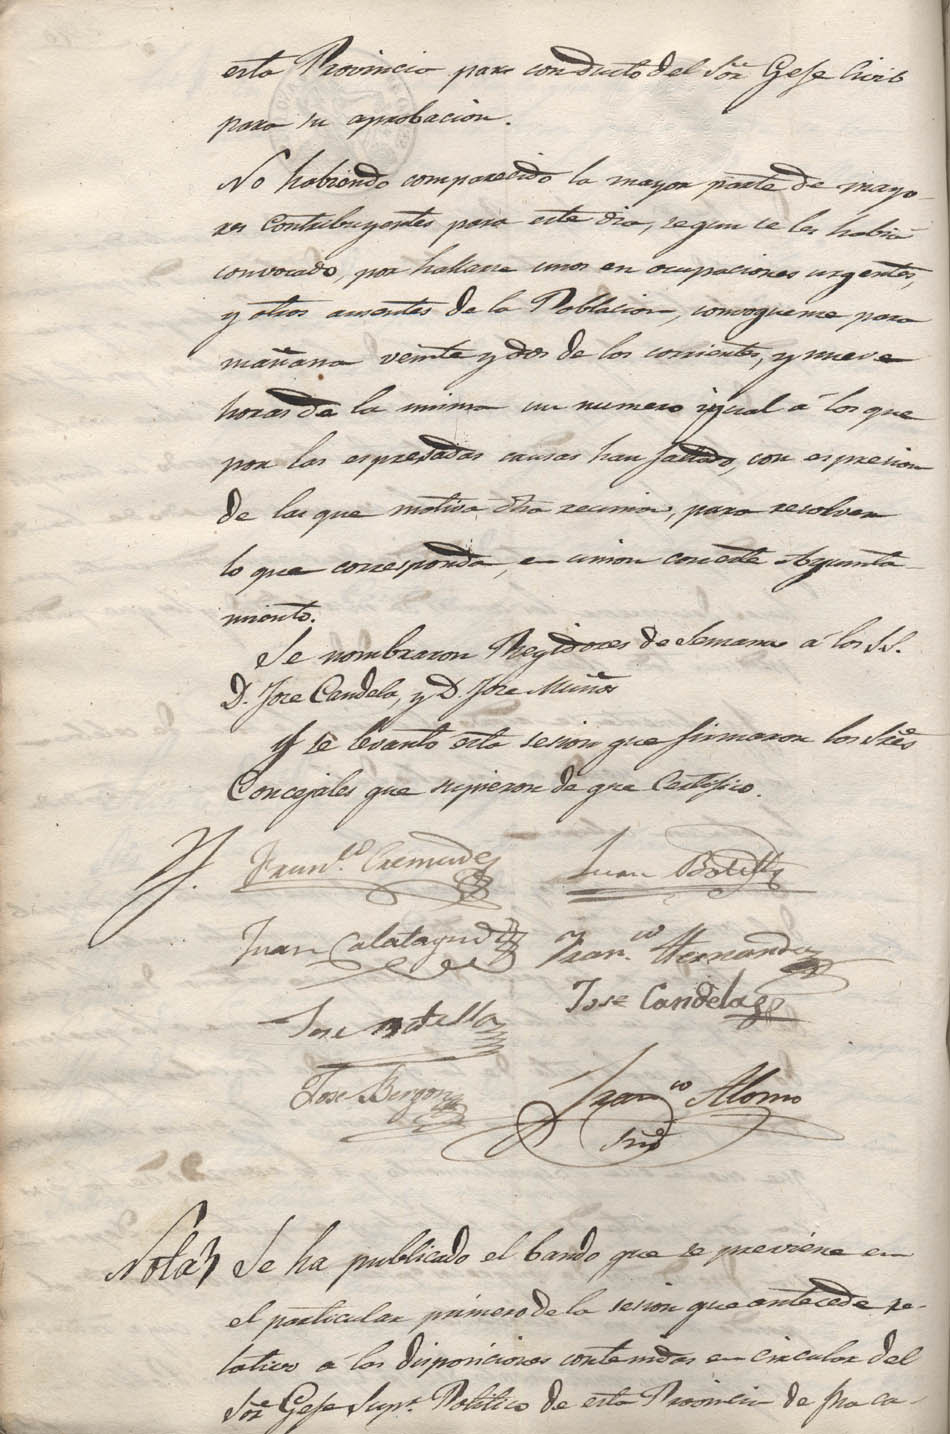 esta Provincia para conducto del Sor. Gefe Civil
para su aprobacion.
No habiendo comparecido la mayor parte de mayo-
res Contribuyentes para este dia, segun se les habia
convocado, por hallarse unos en ocupaciones urgentes,
y otros ausentes de la Poblacion, convoquense para
mañana veinte y dos de los corrientes, y nueve
horas de la misma un numero igual á los que
por las espresadas causas han faltado, con espresion
de las que motiva dha reunion, para resolver
lo que corresponda, en union con este Ayunta-
miento.
Se nombraron Regidores de Semana á los SS.
D. Jose Candela, y D. Jose Muños
Y se levantó esta sesion que firmaron los Sres
Concejales que supieron de que Certifico.
Franco. Cremades Juan Botella
Juan Calatayud Franco Hernandez
Jose Candela
Jose Botella
Jose Bergon
Franco Alonso
Srio
Nota Se ha publicado el bando que se previene en
el particular primero de la sesion que antecede re-
lativo á las disposiciones contenidas en circular del
Sor Gefe Supr. Politico de esta Provincia de fha ca-